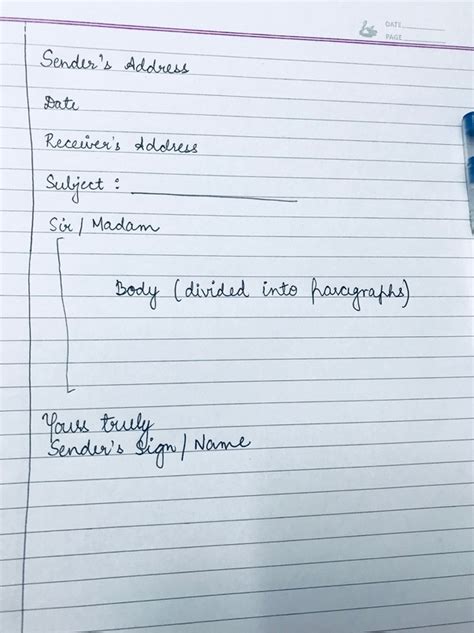 DATE
PAGE
Sender's Address
Date
Receiver's Address
Subject :
Sir / Madam
Body (divided into paragraphs)
Yours truly
Sender's Sign / Name